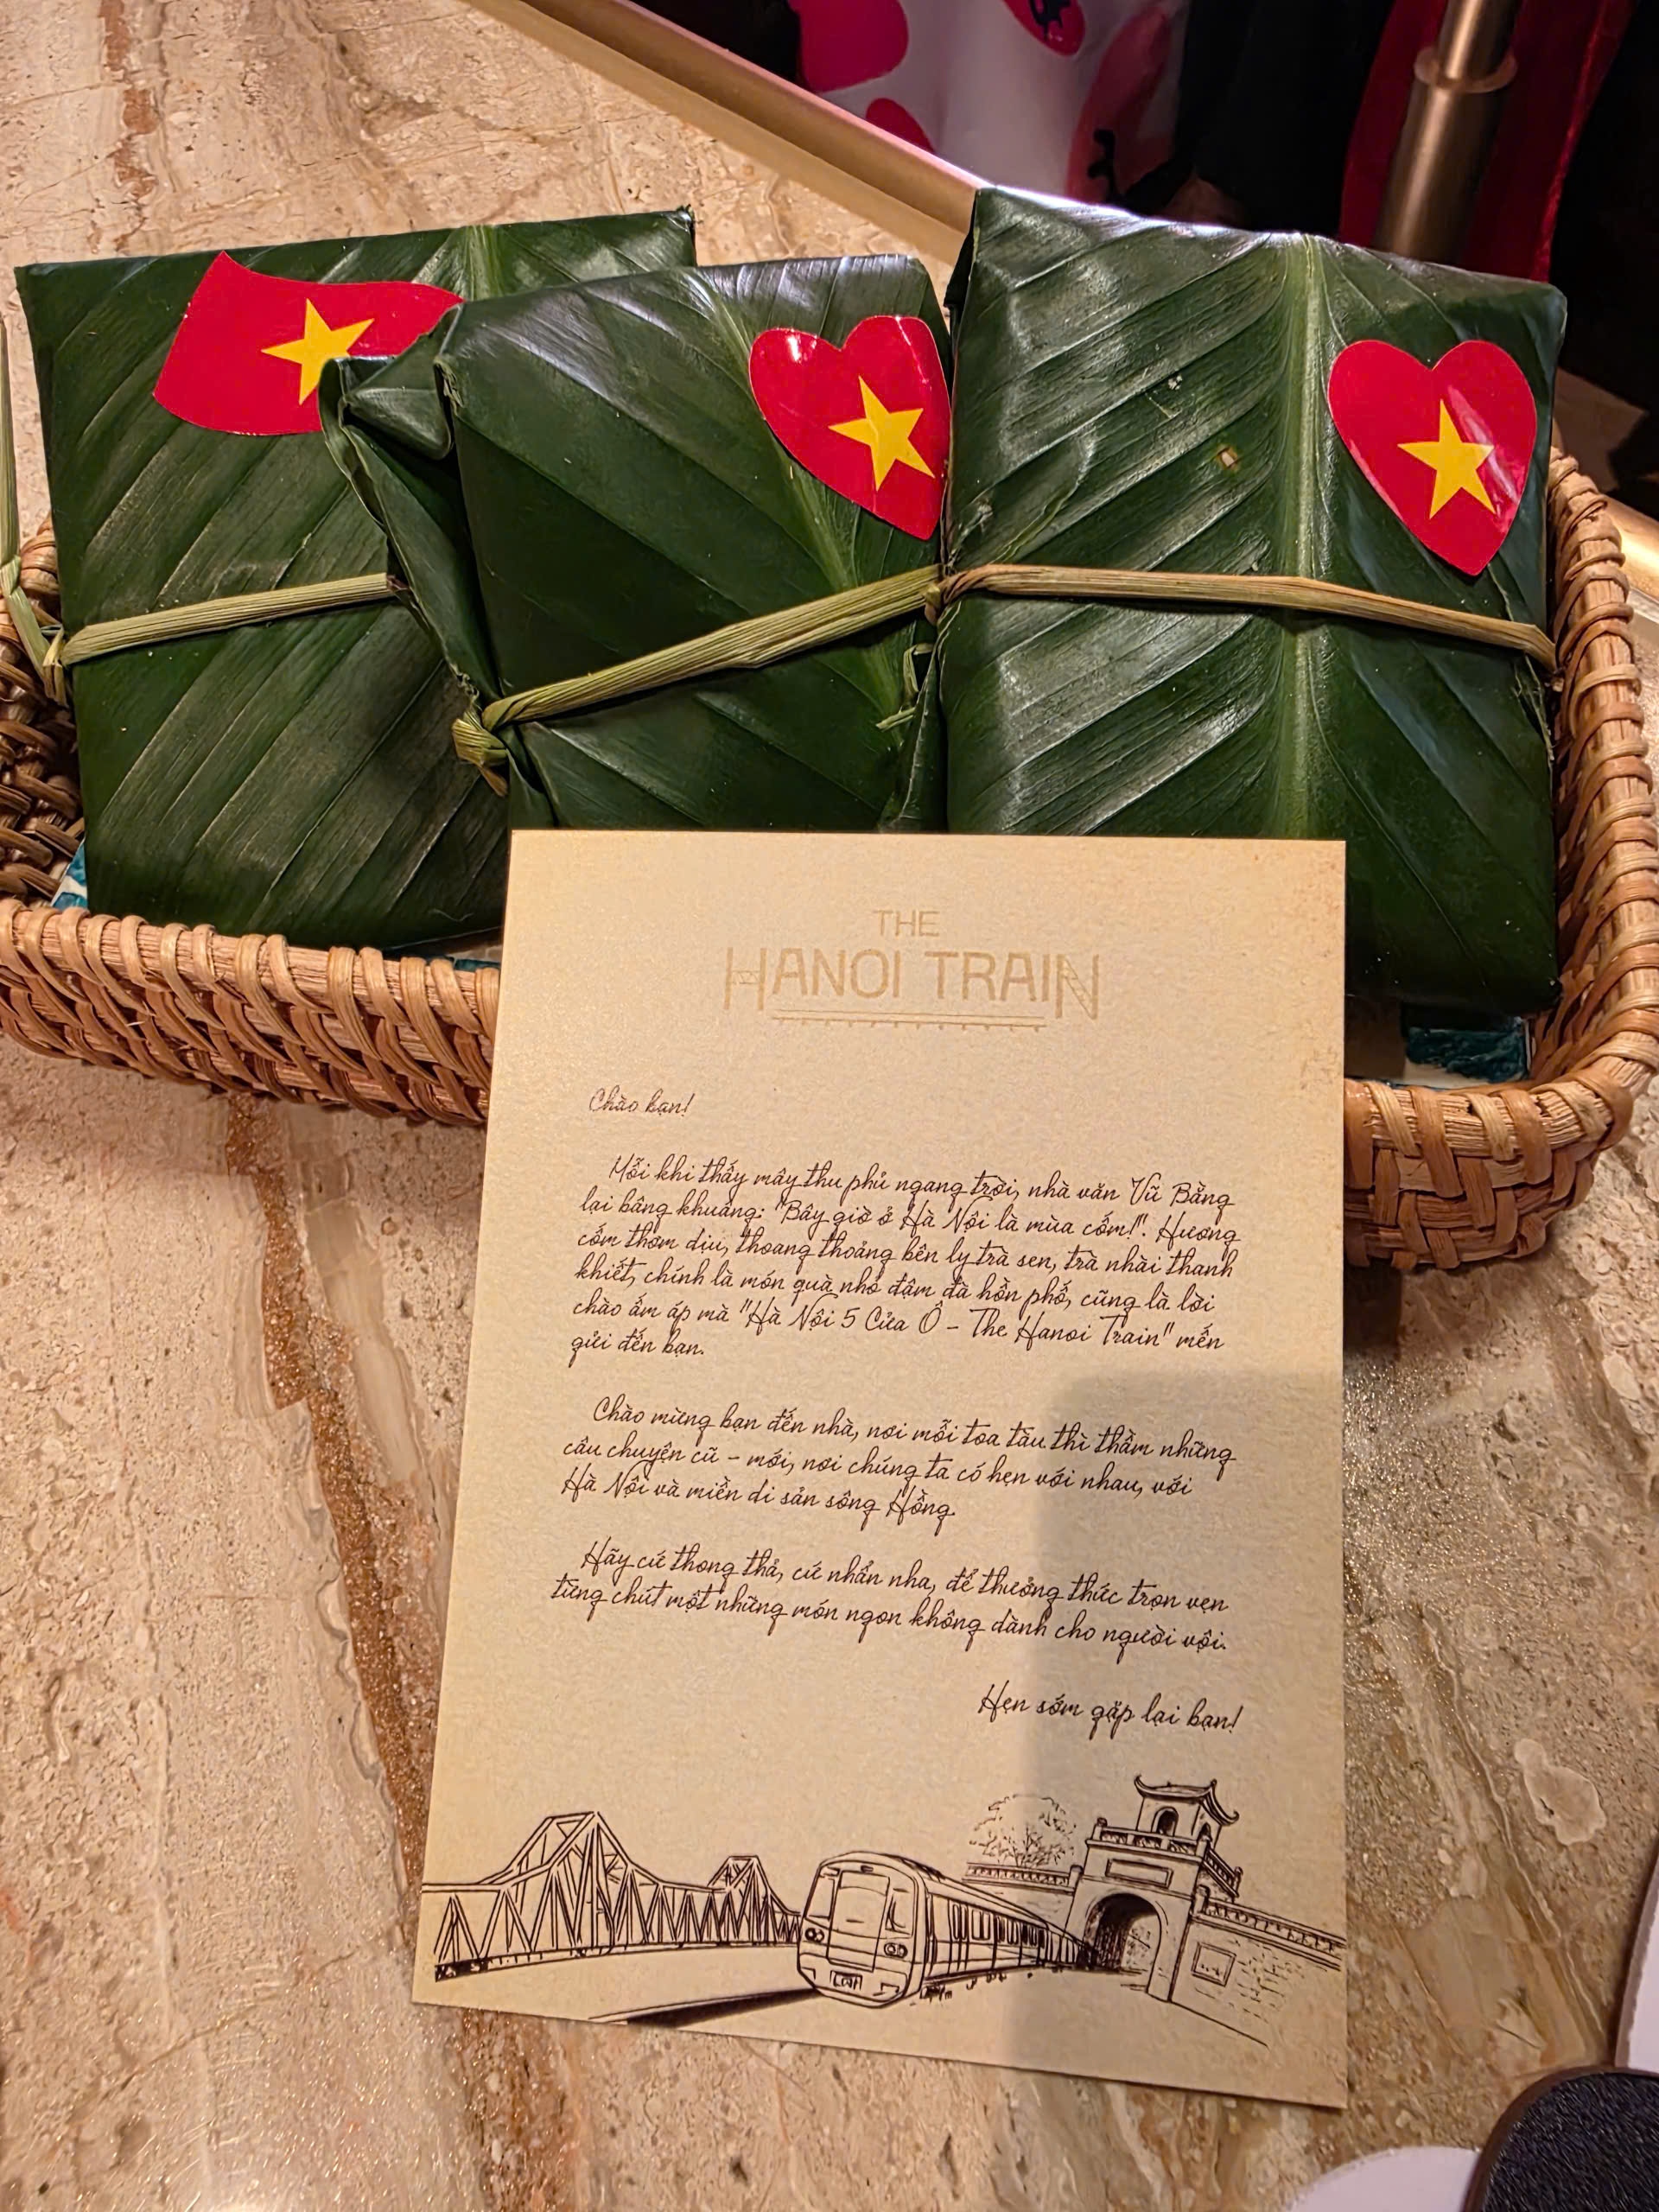 THE
HANOI TRAIN
Chào bạn!
Mỗi khi thấy mây thu phủ ngang trời, nhà văn Vũ Bằng
lại bâng khuâng: "Bây giờ ở Hà Nội là mùa cốm!". Hương
cốm thơm dịu, thoang thoảng bên ly trà sen, trà nhài thanh
khiết, chính là món quà nhỏ đậm đà hồn phố, cũng là lời
chào ấm áp mà "Hà Nội 5 Cửa Ô - The Hanoi Train" mến
gửi đến bạn.
Chào mừng bạn đến nhà, nơi mỗi toa tàu thì thầm những
câu chuyện cũ - mới, nơi chúng ta có hẹn với nhau, với
Hà Nội và miền di sản sông Hồng.
Hãy cứ thong thả, cứ nhẩn nha, để thưởng thức trọn vẹn
từng chút một những món ngon không dành cho người vội.
Hẹn sớm gặp lại bạn!